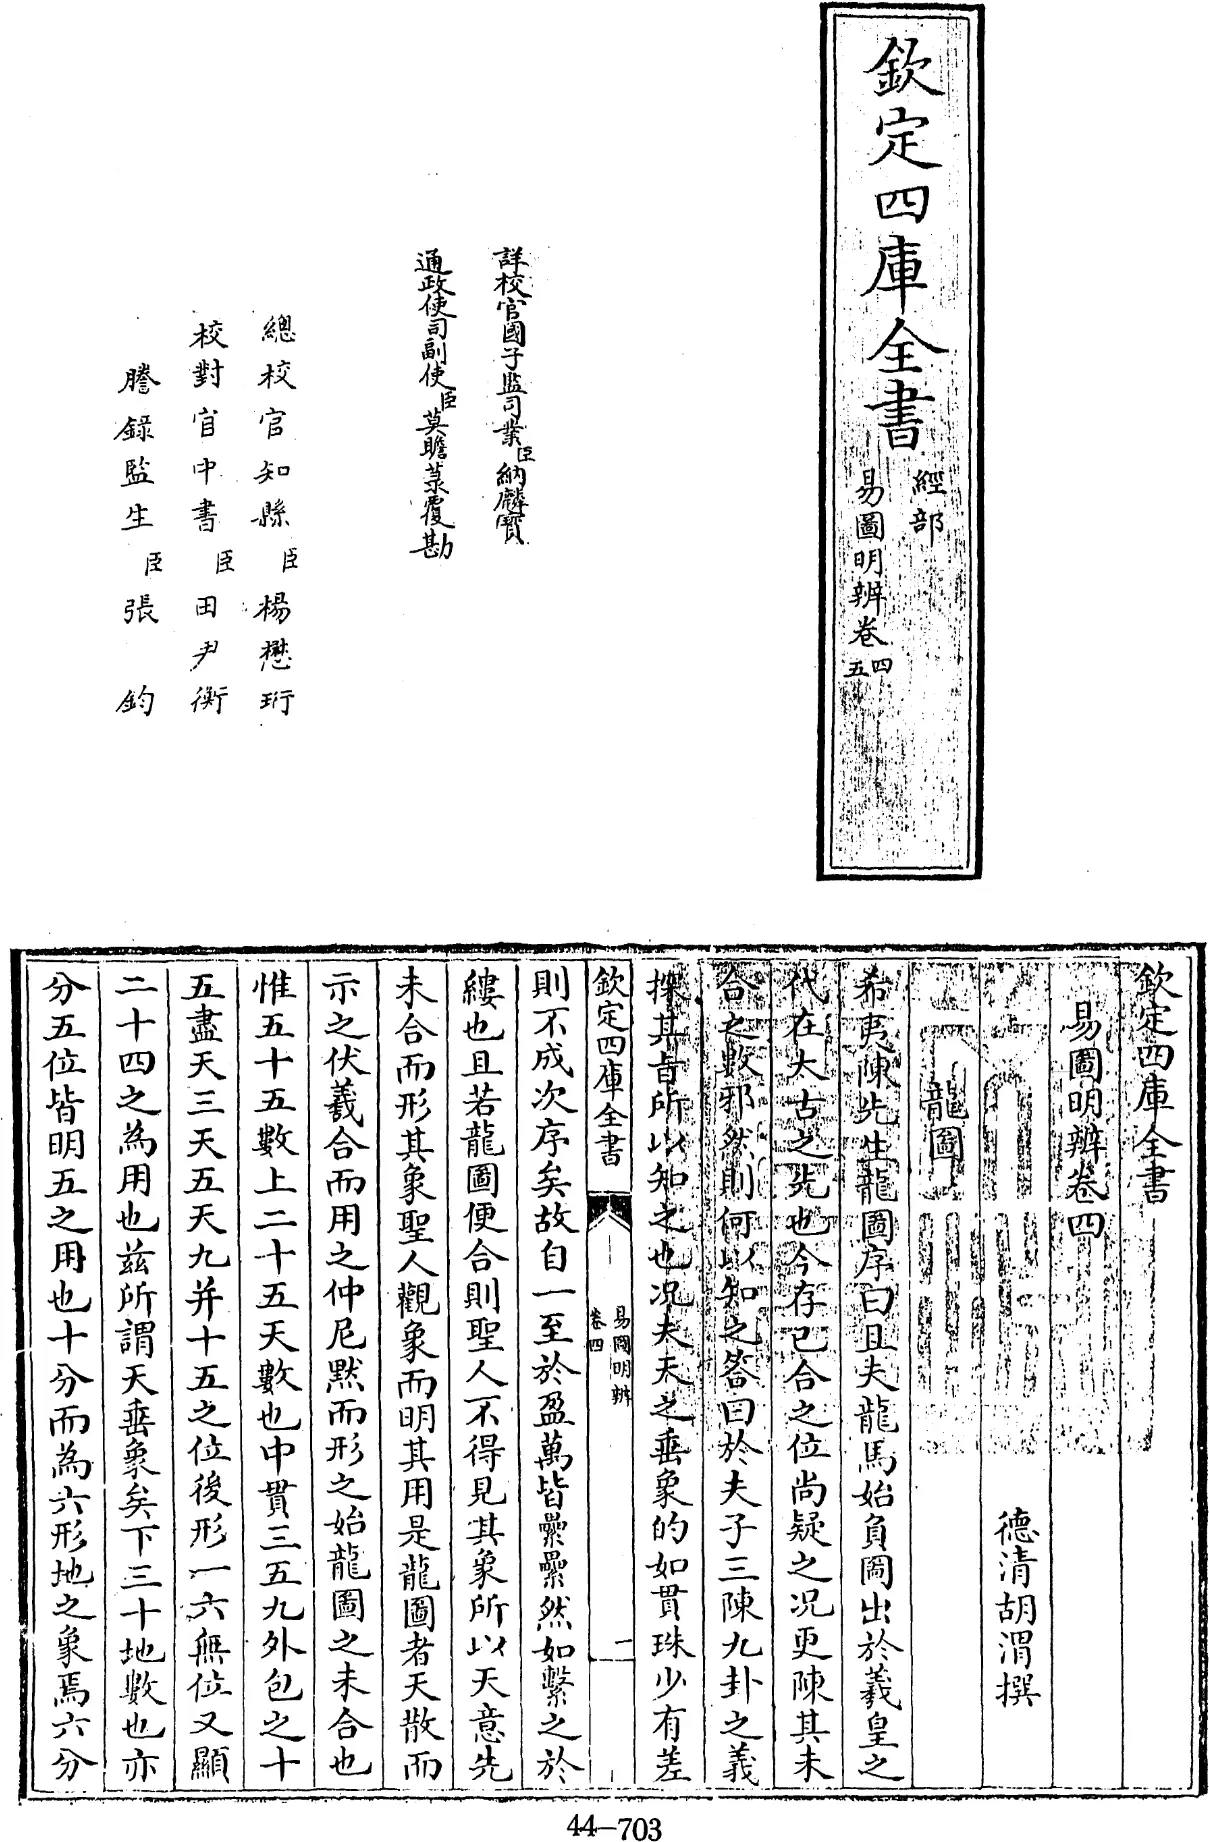 欽定四庫全書
經部
易圖明辨卷四
五
詳校官國子監司業臣納麟寶
通政使司副使臣莫瞻菉覆勘
總校官知縣臣楊懋珩
校對官中書臣田尹衡
謄錄監生臣張鈞
欽定四庫全書
易圖明辨卷四
德清胡渭撰
龍圖
希夷陳先生龍圖序曰且夫龍馬始負圖出於羲皇之
代在太古之先也今存已合之位尚疑之況更陳其未
合之數邪然則何以知之答曰於夫子三陳九卦之義
探其旨所以知之也況夫天之垂象的如貫珠少有差
欽定四庫全書
易圖明辨
卷四
一
則不成次序矣故自一至於盈萬皆纍纍然如繫之於
縷也且若龍圖便合則聖人不得見其象所以天意先
未合而形其象聖人觀象而明其用是龍圖者天散而
示之伏羲合而用之仲尼默而形之始龍圖之未合也
惟五十五數上二十五天數也中貫三五九外包之十
五盡天三天五天九并十五之位後形一六無位又顯
二十四之為用也茲所謂天垂象矣下三十地數也亦
分五位皆明五之用也十分而為六形地之象焉六分
44-703